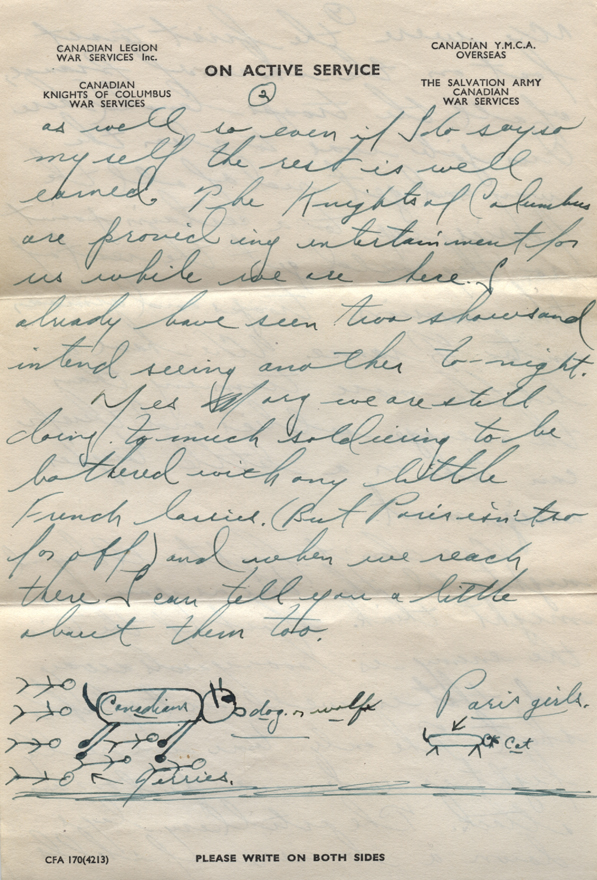 CANADIAN LEGION
WAR SERVICES Inc.
CANADIAN
KNIGHTS OF COLUMBUS
WAR SERVICES
ON ACTIVE SERVICE
CANADIAN Y.M.C.A.
OVERSEAS
THE SALVATION ARMY
CANADIAN
WAR SERVICES
2
as well so even if I do say so
myself the rest is well
earned. The Knights of Columbus
are providing entertainment for
us while we are here. I
already have seen two shows and
intend seeing another to-night.
Yes Marg we are still
doing to much soldiering to be
bothered with any little
French lassies. (But Paris isn't too
far off) and when we reach
there I can tell you a little
about them too.
Canadians
dog. or wolf
Jerries.
Paris girls.
Cat
CFA 170(4213)
PLEASE WRITE ON BOTH SIDES